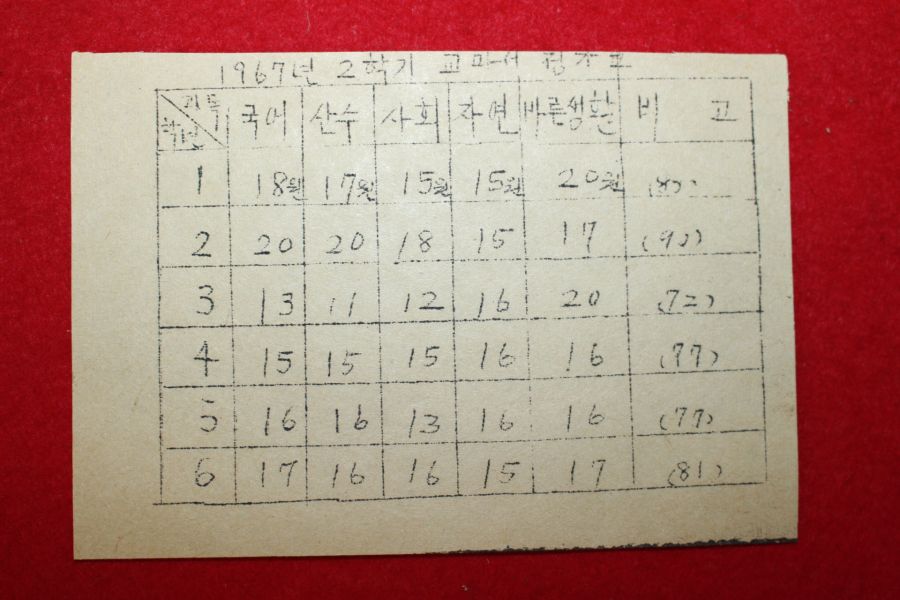 1967년 2학기 교과서 정가표
과목
학년 국어 산수 사회 자연 바른생활 비 고
1 18원 17원 15원 15원 20원
2 20 20 18 15 17 (90)
3 13 11 12 16 20 (72)
4 15 15 15 16 16 (77)
5 16 16 13 16 16 (77)
6 17 16 16 15 17 (81)